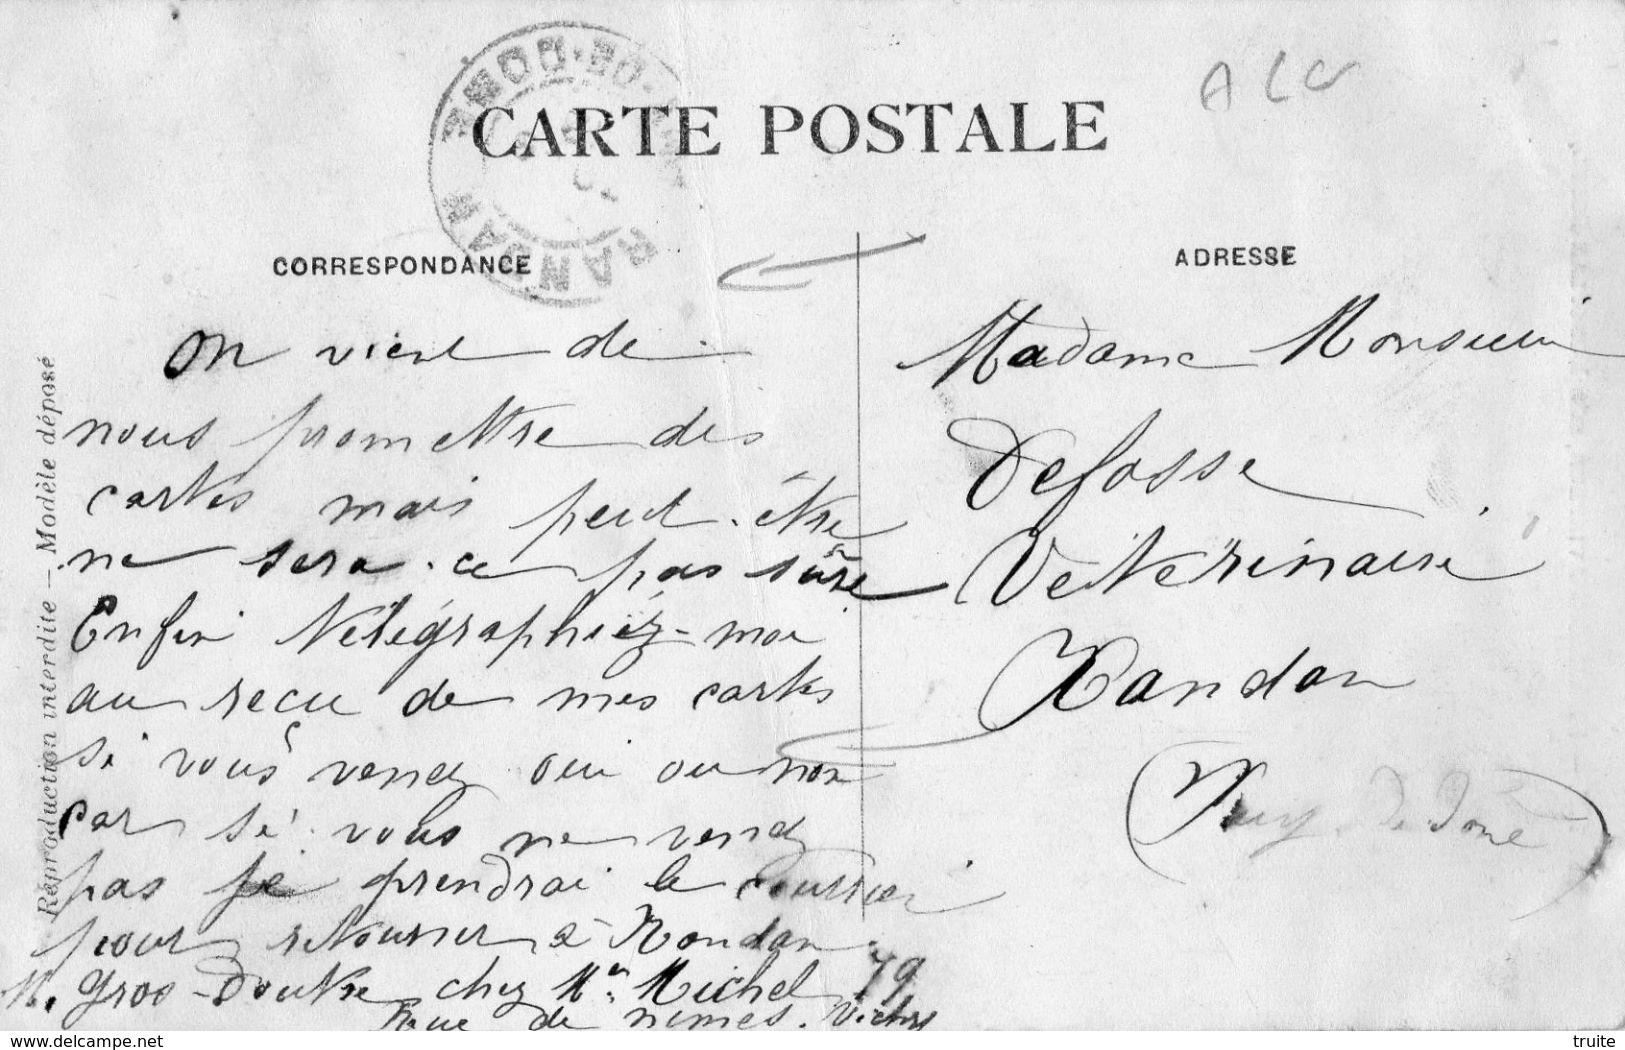 CARTE POSTALE
ALC
PUY-DE-DOME
RANDAN
CORRESPONDANCE
ADRESSE
On vient de
nous promettre des
cartes mais peut-être
ne sera-ce pas sûre
Enfin télégraphiéz-moi
au recu de mes cartes
si vous venez oui ou non
car si vous ne venez
pas je prendrai le courrier
pour retourner à Randan
M. Gros-Doutre chez Me Michel 79
Rue de nimes. Vichy
Madame Monsieur
Defosse
Vétérinaire
Randan
(Puy de Dome)
Reproduction interdite — Modèle déposé
delcampe.net
truite